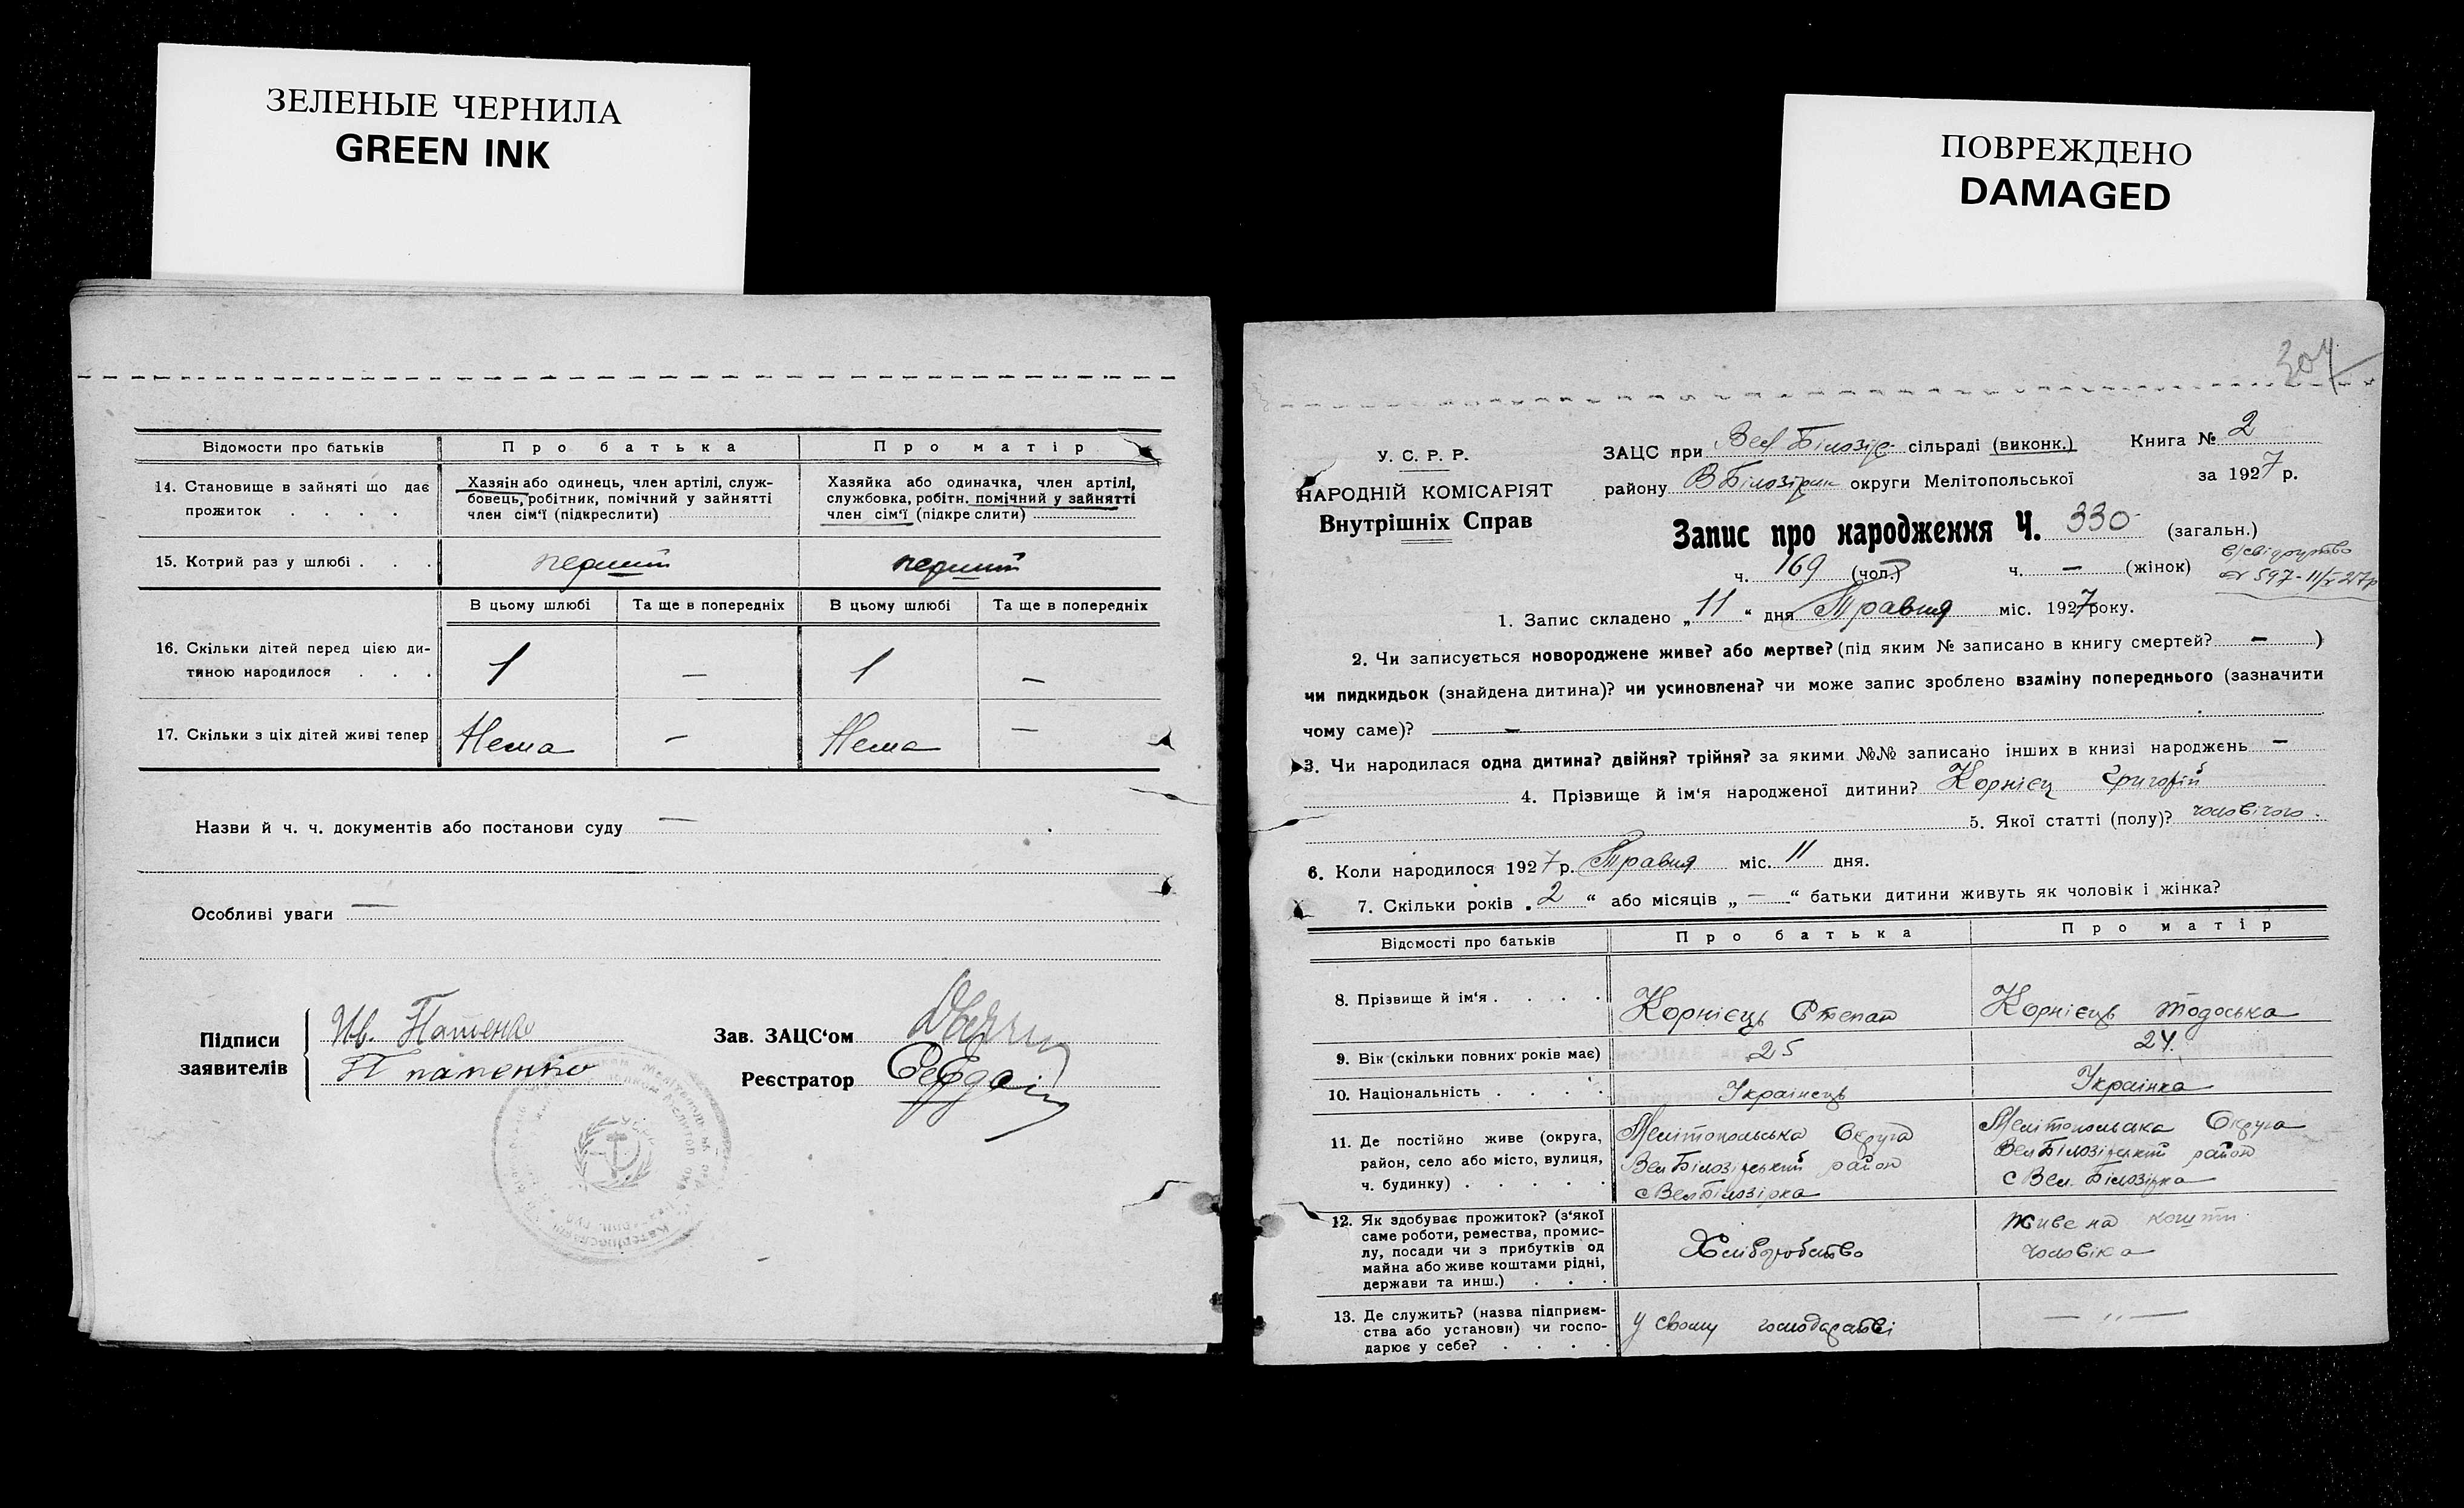 ЗЕЛЕНЫЕ ЧЕРНИЛА
GREEN INK
ПОВРЕЖДЕНО
DAMAGED
Відомости про батьків
Про батька
Про матір
14. Становище в зайняті що дає
прожиток . . . .
Хазяін або одинець, член артілі, служ-
бовець, робітник, помічний у зайнятті
член сім'ї (підкреслити)
Хазяйка або одиначка, член артілі,
службовка, робітн. помічний у зайнятті
член сім'ї (підкреслити)
15. Котрий раз у шлюбі . . .
перший
перший
В цьому шлюбі
Та ще в попередніх
В цьому шлюбі
Та ще в попередніх
16. Скільки дітей перед цією ди-
тиною народилося . . .
1
—
1
—
17. Скільки з ціх дітей живі тепер
Нема
—
Нема
—
Назви й ч. ч. документів або постанови суду —
Особливі уваги —
Підписи
заявителів
Ив. Патенко
П патенко
Зав. ЗАЦС'ом
Реєстратор
304
У. С. Р. Р.
НАРОДНІЙ КОМІСАРІЯТ
Внутрішніх Справ
ЗАЦС при Вел Білозір сільраді (виконк.) Книга № 2
району ВБілозірк округи Мелітопольської за 1927 р.
Запис про народження Ч. 330 (загальн.)
ч. 169 (чол.) ч. — (жінок)
1. Запис складено „ 11 “ дня Травня міс. 1927 року.
2. Чи записується новороджене живе? або мертве? (під яким № записано в книгу смертей? — )
чи пидкидьок (знайдена дитина)? чи усиновлена? чи може запис зроблено взаміну попереднього (зазначити
чому саме)? —
3. Чи народилася одна дитина? двійня? трійня? за якими №№ записано інших в книзі народжень —
4. Прізвище й ім'я народженої дитини? Корнієц Григорій
5. Якої статті (полу)? чоловічого.
6. Коли народилося 1927 р. Травня міс. 11 дня.
7. Скільки років „ 2 “ або місяців „ — “ батьки дитини живуть як чоловік і жінка?
Відомості про батьків
Про батька
Про матір
8. Прізвище й ім'я . . . .
Корнієць Степан
Корнієць Тодоська
9. Вік (скільки повних років має)
25
24.
10. Національність . . . .
Українець
Українка
11. Де постійно живе (округа,
район, село або місто, вулиця,
ч. будинку) . . . . .
Мелітопольська Округа
Вел Білозірський район
с Вел Білозірка
Мелітопольска Округа
Вел Білозірский район
с Вел. Білозірка
12. Як здобуває прожиток? (з'якої
саме роботи, ремества, промис-
лу, посади чи з прибутків од
майна або живе коштами рідні,
держави та инш.) . . .
Хліборобство
Живе на кошти
чоловіка
13. Де служить? (назва підприєм-
ства або установи) чи госпо-
дарює у себе? . . . .
у свому господарстві
— „ —